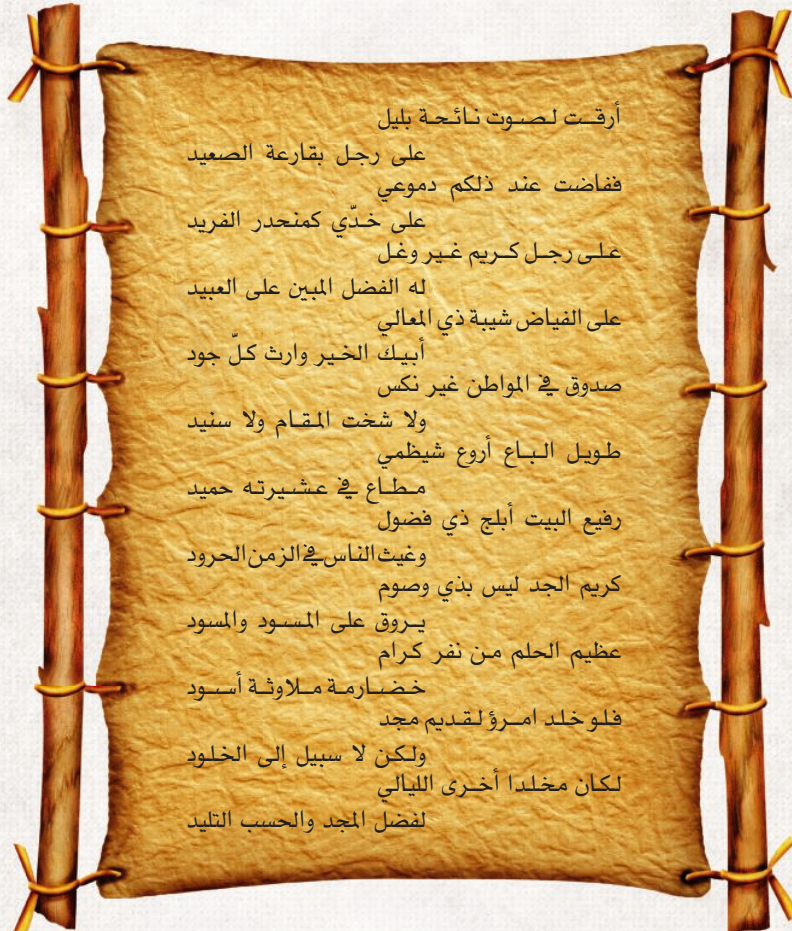 أرقت لصوت نائحة بليل
على رجل بقارعة الصعيد
ففاضت عند ذلكم دموعي
على خدّي كمنحدر الفريد
على رجل كريم غير وغل
له الفضل المبين على العبيد
على الفياض شيبة ذي المعالي
أبيك الخير وارث كلّ جود
صدوق في المواطن غير نكس
ولا شخت المقام ولا سنيد
طويل الباع أروع شيظمي
مطاع في عشيرته حميد
رفيع البيت أبلج ذي فضول
وغيث الناس في الزمن الحرود
كريم الجد ليس بذي وصوم
يروق على المسود والمسود
عظيم الحلم من نفر كرام
خضارمة ملاوثة أسود
فلو خلد امرؤ لقديم مجد
ولكن لا سبيل إلى الخلود
لكان مخلدا أخرى الليالي
لفضل المجد والحسب التليد